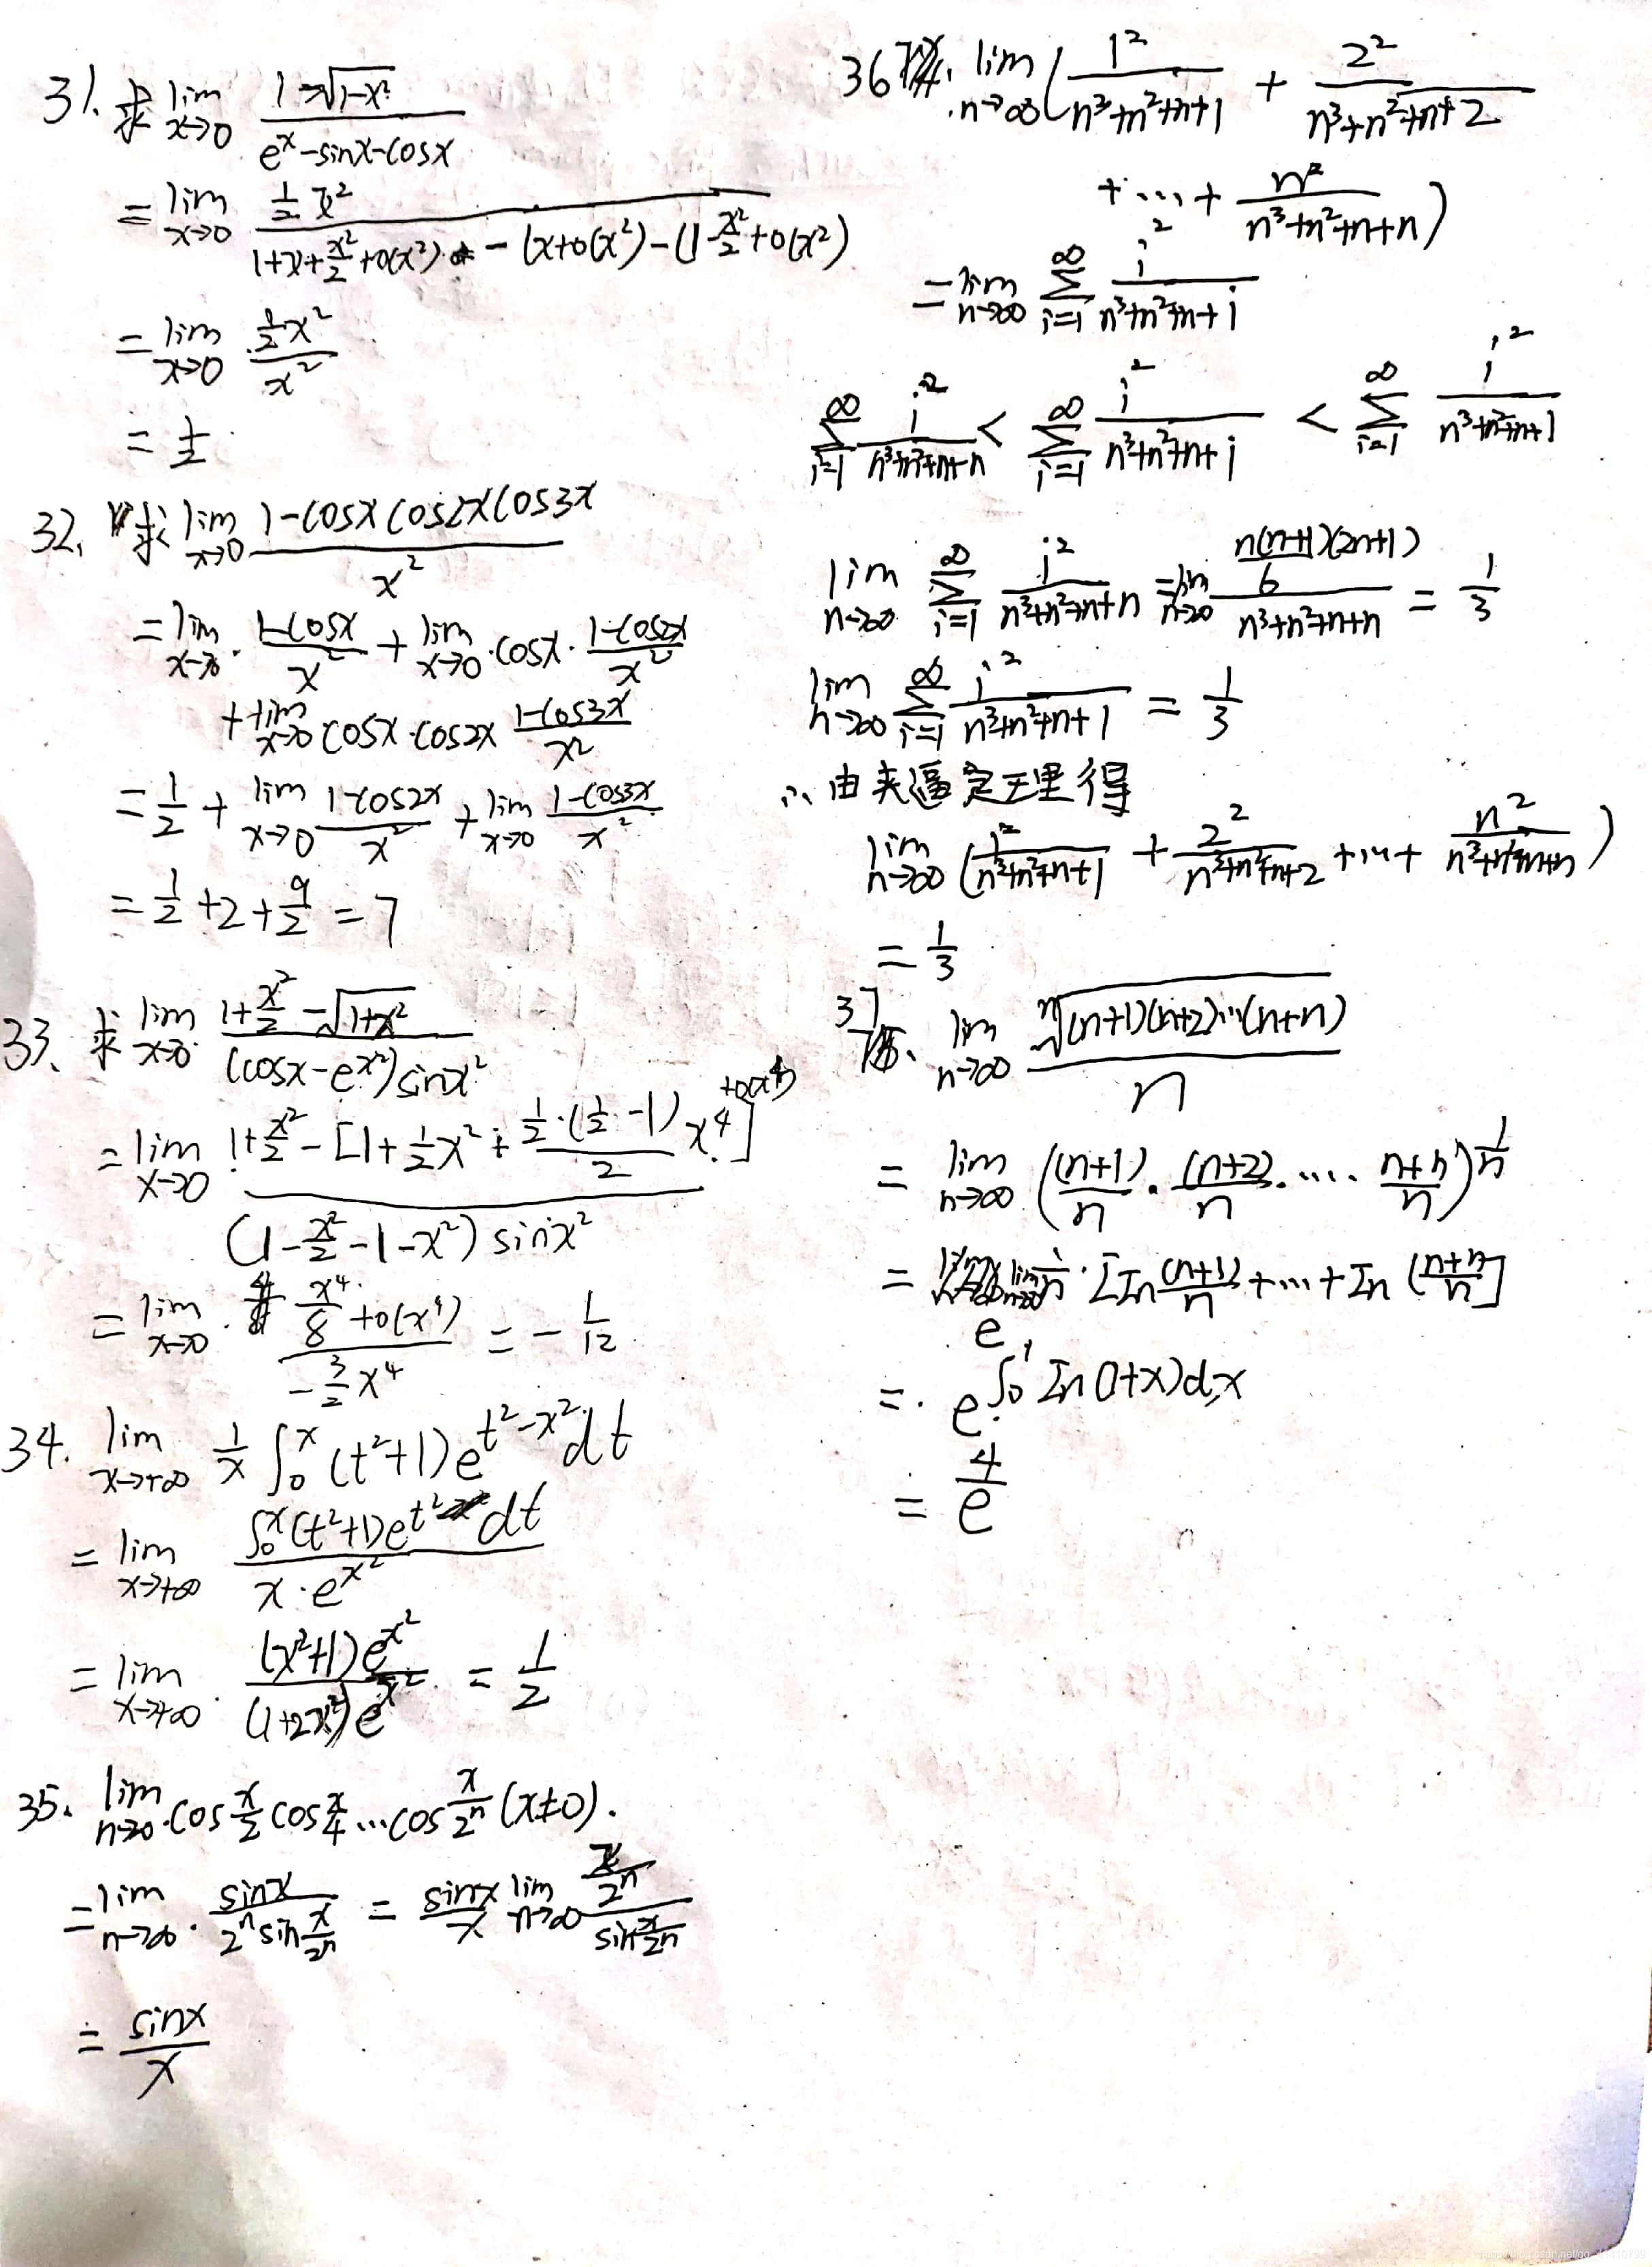 31. 求 lim x→0 (1-√(1-x²))/(e^x-sinx-cosx)
= lim x→0 (½x²)/(1+x+x²/2+o(x²) - (x+o(x²)-(1-x²/2+o(x²))
= lim x→0 (½x²)/x²
= ½
32. 求 lim x→0 (1-cosxcos2xcos3x)/x²
= lim x→0 (1-cosx)/x² + lim x→0 cosx·(1-cos2x)/x²
+ lim x→0 cosx·cos2x (1-cos3x)/x²
= ½ + lim x→0 (1-cos2x)/x² + lim x→0 (1-cos3x)/x²
= ½ + 2 + 9/2 = 7
33. 求 lim x→0 (1+x²/2-√(1+x²))/((cosx-e^(x²))sinx²)
= lim x→0 (1+x²/2-[1+½x²+(½·(½-1))/2 x⁴+o(x⁴)])/((1-x²/2-1-x²)sinx²)
= lim x→0 (x⁴/8+o(x⁴))/(-3/2 x⁴) = -1/12
34. lim x→+∞ 1/x ∫₀^x (t²+1)e^(t²-x²)dt
= lim x→+∞ (∫₀^x (t²+1)e^(t²) dt)/(x·e^(x²))
= lim x→+∞ ((x²+1)e^(x²))/((1+2x²)e^(x²)) = 1/2
35. lim n→∞ cos x/2 cos x/4 …cos x/2ⁿ (x≠0).
= lim n→∞ sinx/(2ⁿ sin x/2ⁿ) = sinx/x lim n→∞ (x/2ⁿ)/(sin x/2ⁿ)
= sinx/x
36. lim n→∞ (1²/(n³+n²+n+1) + 2²/(n³+n²+n+2)
+ … + n²/(n³+n²+n+n))
= lim n→∞ ∑_(i=1)^∞ i²/(n³+n²+n+i)
∑_(i=1)^∞ i²/(n³+n²+n+n) < ∑_(i=1)^∞ i²/(n³+n²+n+i) < ∑_(i=1)^∞ i²/(n³+n²+n+1)
lim n→∞ ∑_(i=1)^∞ i²/(n³+n²+n+n) = lim n→∞ (n(n+1)(2n+1)/6)/(n³+n²+n+n) = 1/3
lim n→∞ ∑_(i=1)^∞ i²/(n³+n²+n+1) = 1/3
∴ 由夹逼定理得
lim n→∞ (1²/(n³+n²+n+1) + 2²/(n³+n²+n+2) + … + n²/(n³+n²+n+n))
= 1/3
37. lim n→∞ ⁿ√((n+1)(n+2)…(n+n))/n
= lim n→∞ ((n+1)/n · (n+2)/n · … · (n+n)/n)^(1/n)
= e^(lim n→∞ 1/n · [In (n+1)/n + … + In ((n+n)/n)])
= e^(∫₀¹ In(1+x)dx)
= 4/e